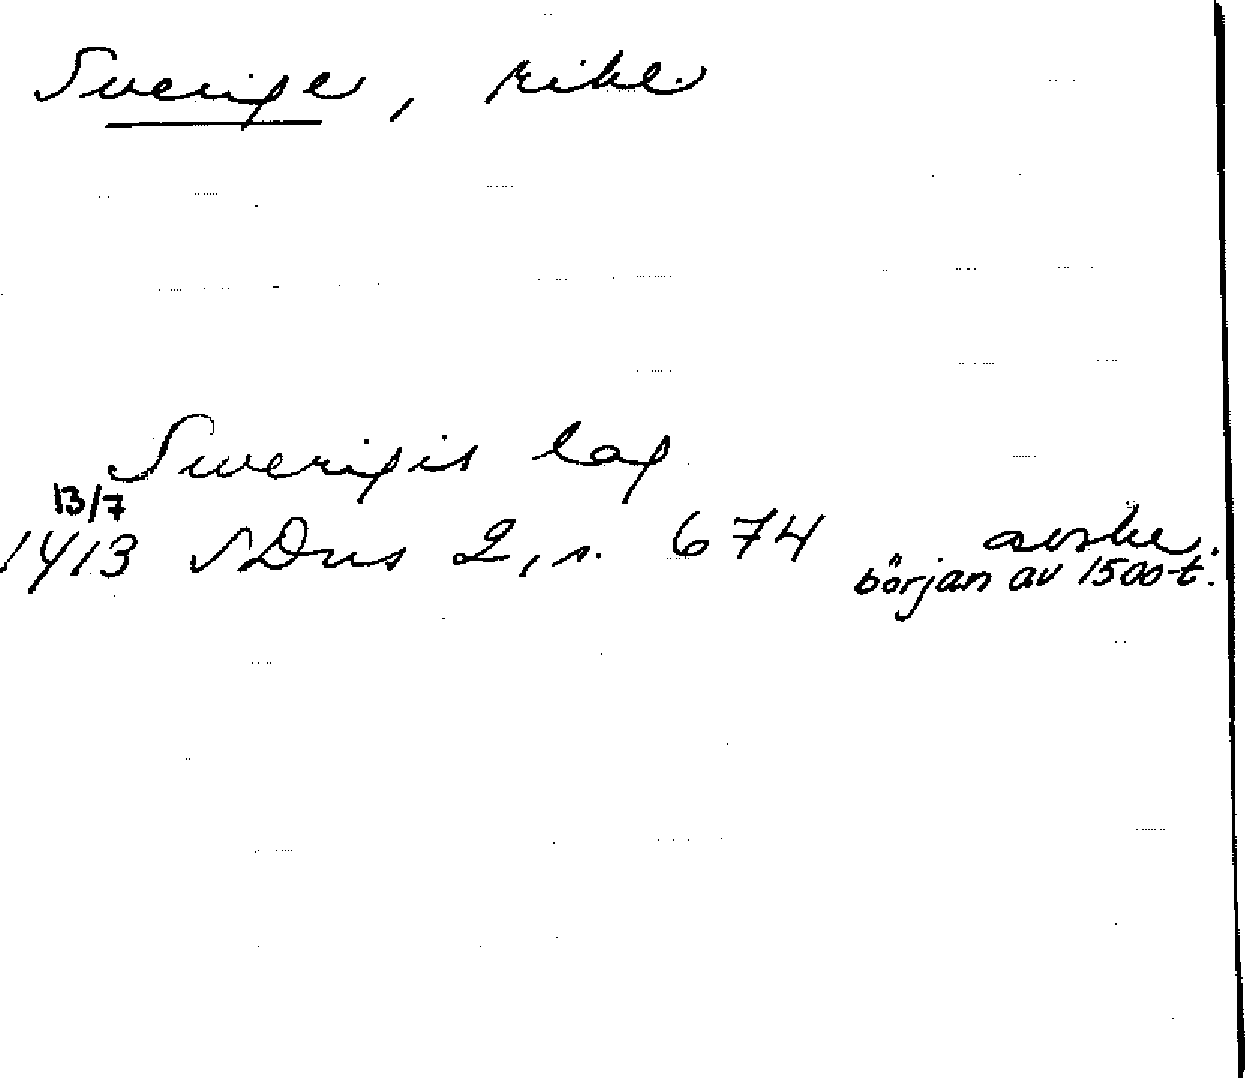 Sverige, rike
Swerigis lag
13/7
1413 SDns 2, s. 674 avskr.
början av 1500-t.